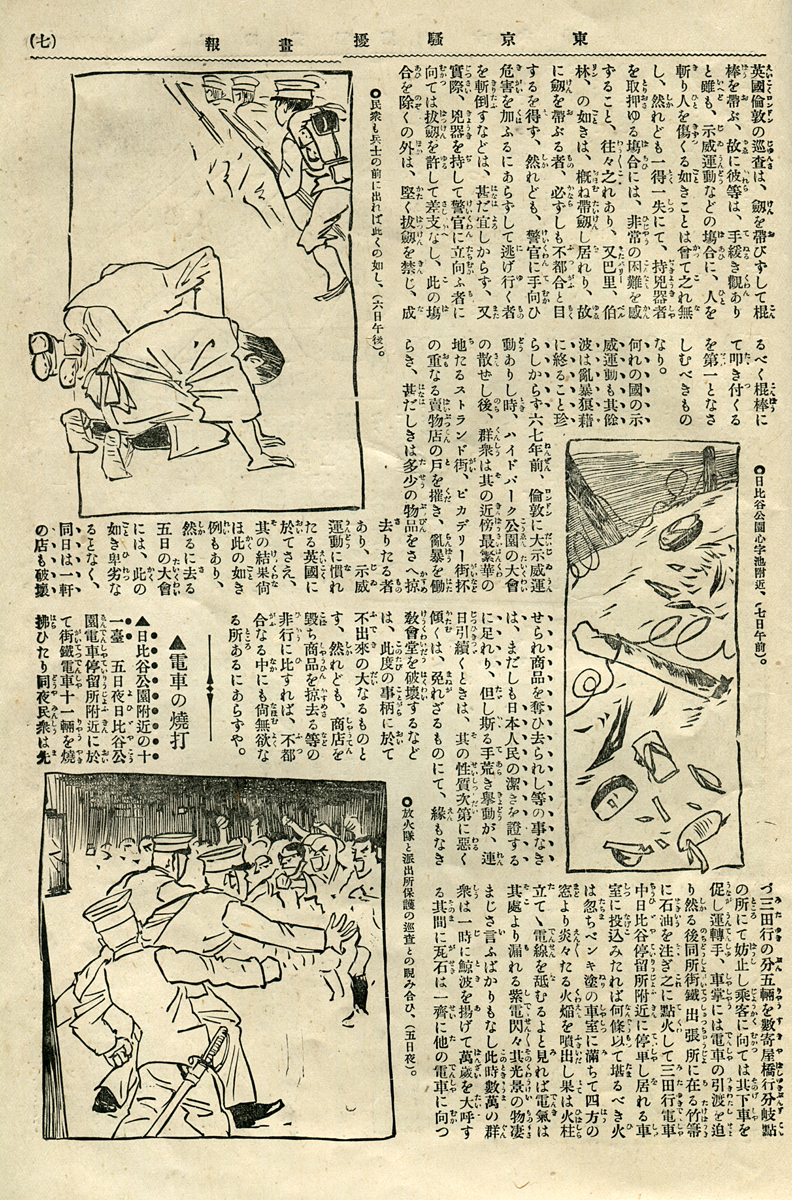 東京騷擾畫報
(七)
英國倫敦の巡査は、劔を帶びずして棍
棒を帶ぶ、故に彼等は、手緩き觀あり
と雖も、示威運動などの塲合に、人を
斬り人を傷くる如きことは曾て之れ無
し、然れども一得一失にて、持兇器者
を取押ゆる塲合には、非常の困難を感
ずること、往々之れあり、又巴里、伯
林、の如きは、概ね帶劔し居れり、故
に劔を帶ぶる者、必ずしも不都合と目
するを得ず、然れども、警官に手向ひ
危害を加ふるにあらずして逃げ行く者
を斬倒すなどは、甚だ宜しからず、又
實際、兇器を持して警官に立向ふ者に
向ては拔劔を許して差支なし、此の塲
合を除くの外は、堅く拔劔を禁じ、成
●民衆も兵士の前に出れば此くの如し、(六日午後)。
るべく棍棒に
て叩き付くる
を第一となさ
しむべきもの
なり。
何れの國の示
威運動も其餘
波は亂暴狼藉
に終ること珍
らしからず六七年前、倫敦に大示威運
動ありし時、ハイドパーク公園の大會
の散せし後、群衆は其の近傍最繁華の
地たるストランド街、ピカデリー街抔
の重なる賣物店の戸を摧き、亂暴を働
らき、甚だしきは多少の物品をさへ掠
去りたる者
あり、示威
運動に慣れ
たる英國に
於てさえ、
其の結果尙
ほ此の如き
例もあり、
然るに去る
五日の大會
には、此の
如き卑劣な
るとなく、
同日は一軒
の店も破壞
●日比谷公園心字池附近、(七日午前)。
せられ商品を奪ひ去られし等の事なき
は、まだしも日本人民の潔さを證する
に足れり、但し斯る手荒き擧動が、連
日引續くときは、其の性質次第に惡く
傾くは、免れざるものにて、緣もなき
敎會堂を破壞するなど
は、此度の事柄に於て
不出來の大なるものと
す、然れども、商店を
毀ち商品を掠去る等の
非行に比すれば、不都
合なる中にも尙無欲な
る所あるにあらずや。
▲電車の燒打
▲日比谷公園附近の十
一臺　五日夜日比谷公
園電車停留所附近に於
て街鐵電車十一輛を燒
拂ひたり同夜民衆は先
●放火隊と派出所保護の巡査との睨み合ひ、(五日夜)。
づ三田行の分五輛を數寄屋橋行分岐點
の所にて妨止し乘客に向ては其下車を
促し運轉手、車掌には電車の引渡を迫
り然る後同所街鐵出張所に在る竹箒
に石油を注ぎ之に點火して三田行電車
中日比谷停留所附近に停車し居れる車
室に投込みたれば何條以て堪るべき火
は忽ちペンキ塗の車室に滿ちて四方の
窓より炎々たる火熖を噴出し果は火柱
立て電線を舐むるよと見れば電氣は
其處より漏れる紫電閃々其光景の物凄
まじさ言ふばかりもなし此時數萬の群
衆は一時に鯨波を揚げて萬歲を大呼す
る其間に瓦石は一齊に他の電車に向つ